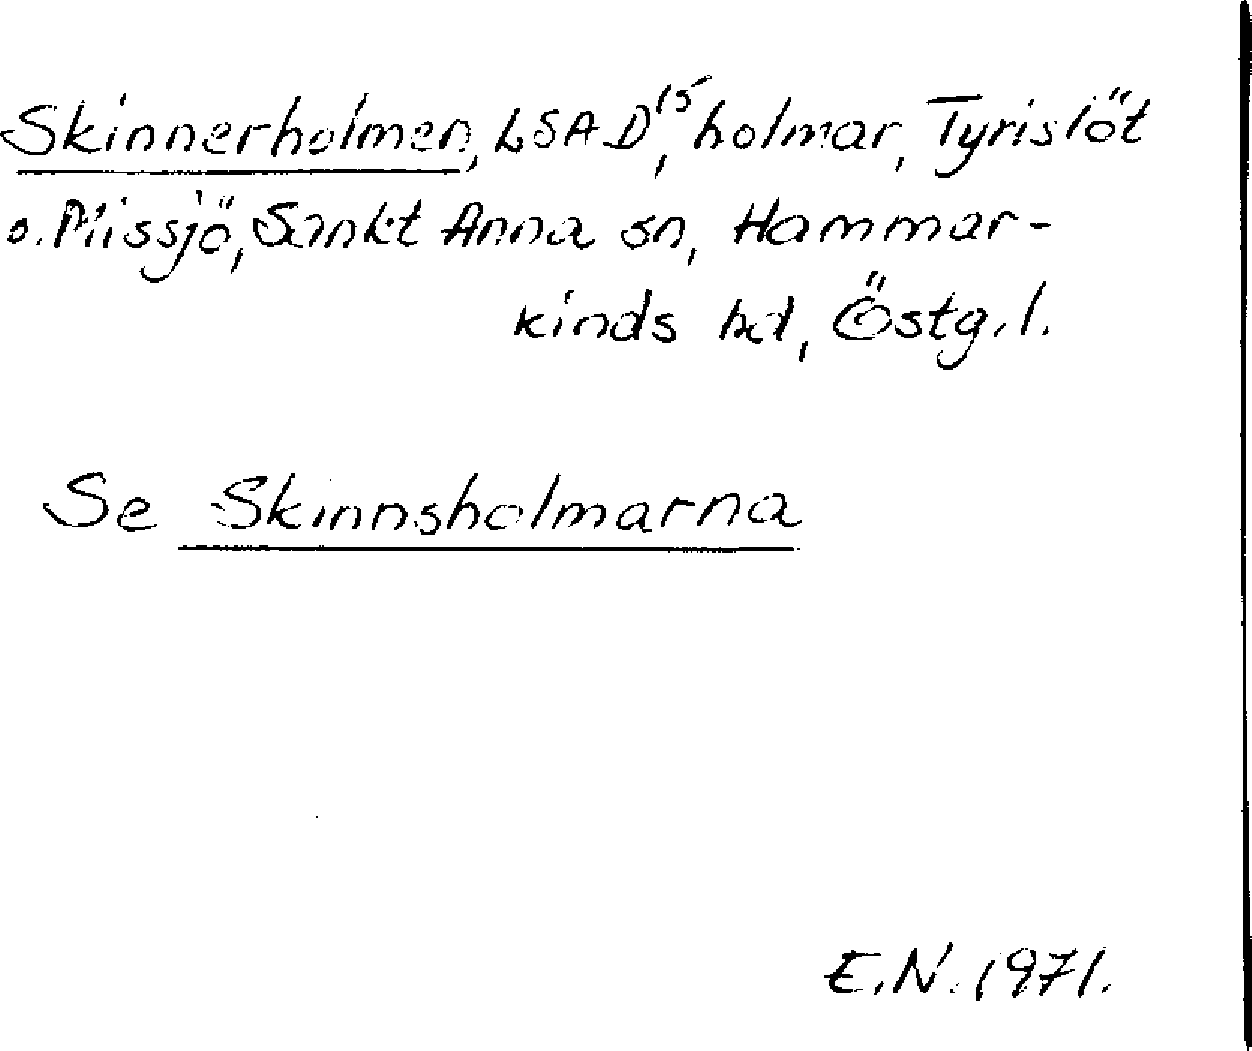 Skinnerholmen, LSA D15, holmar, Tyrislöt
o. Missjö, Sankt Anna sn, Hammar-
kinds hd, Östg. l.
Se Skinnsholmarna
E.N. 1971.